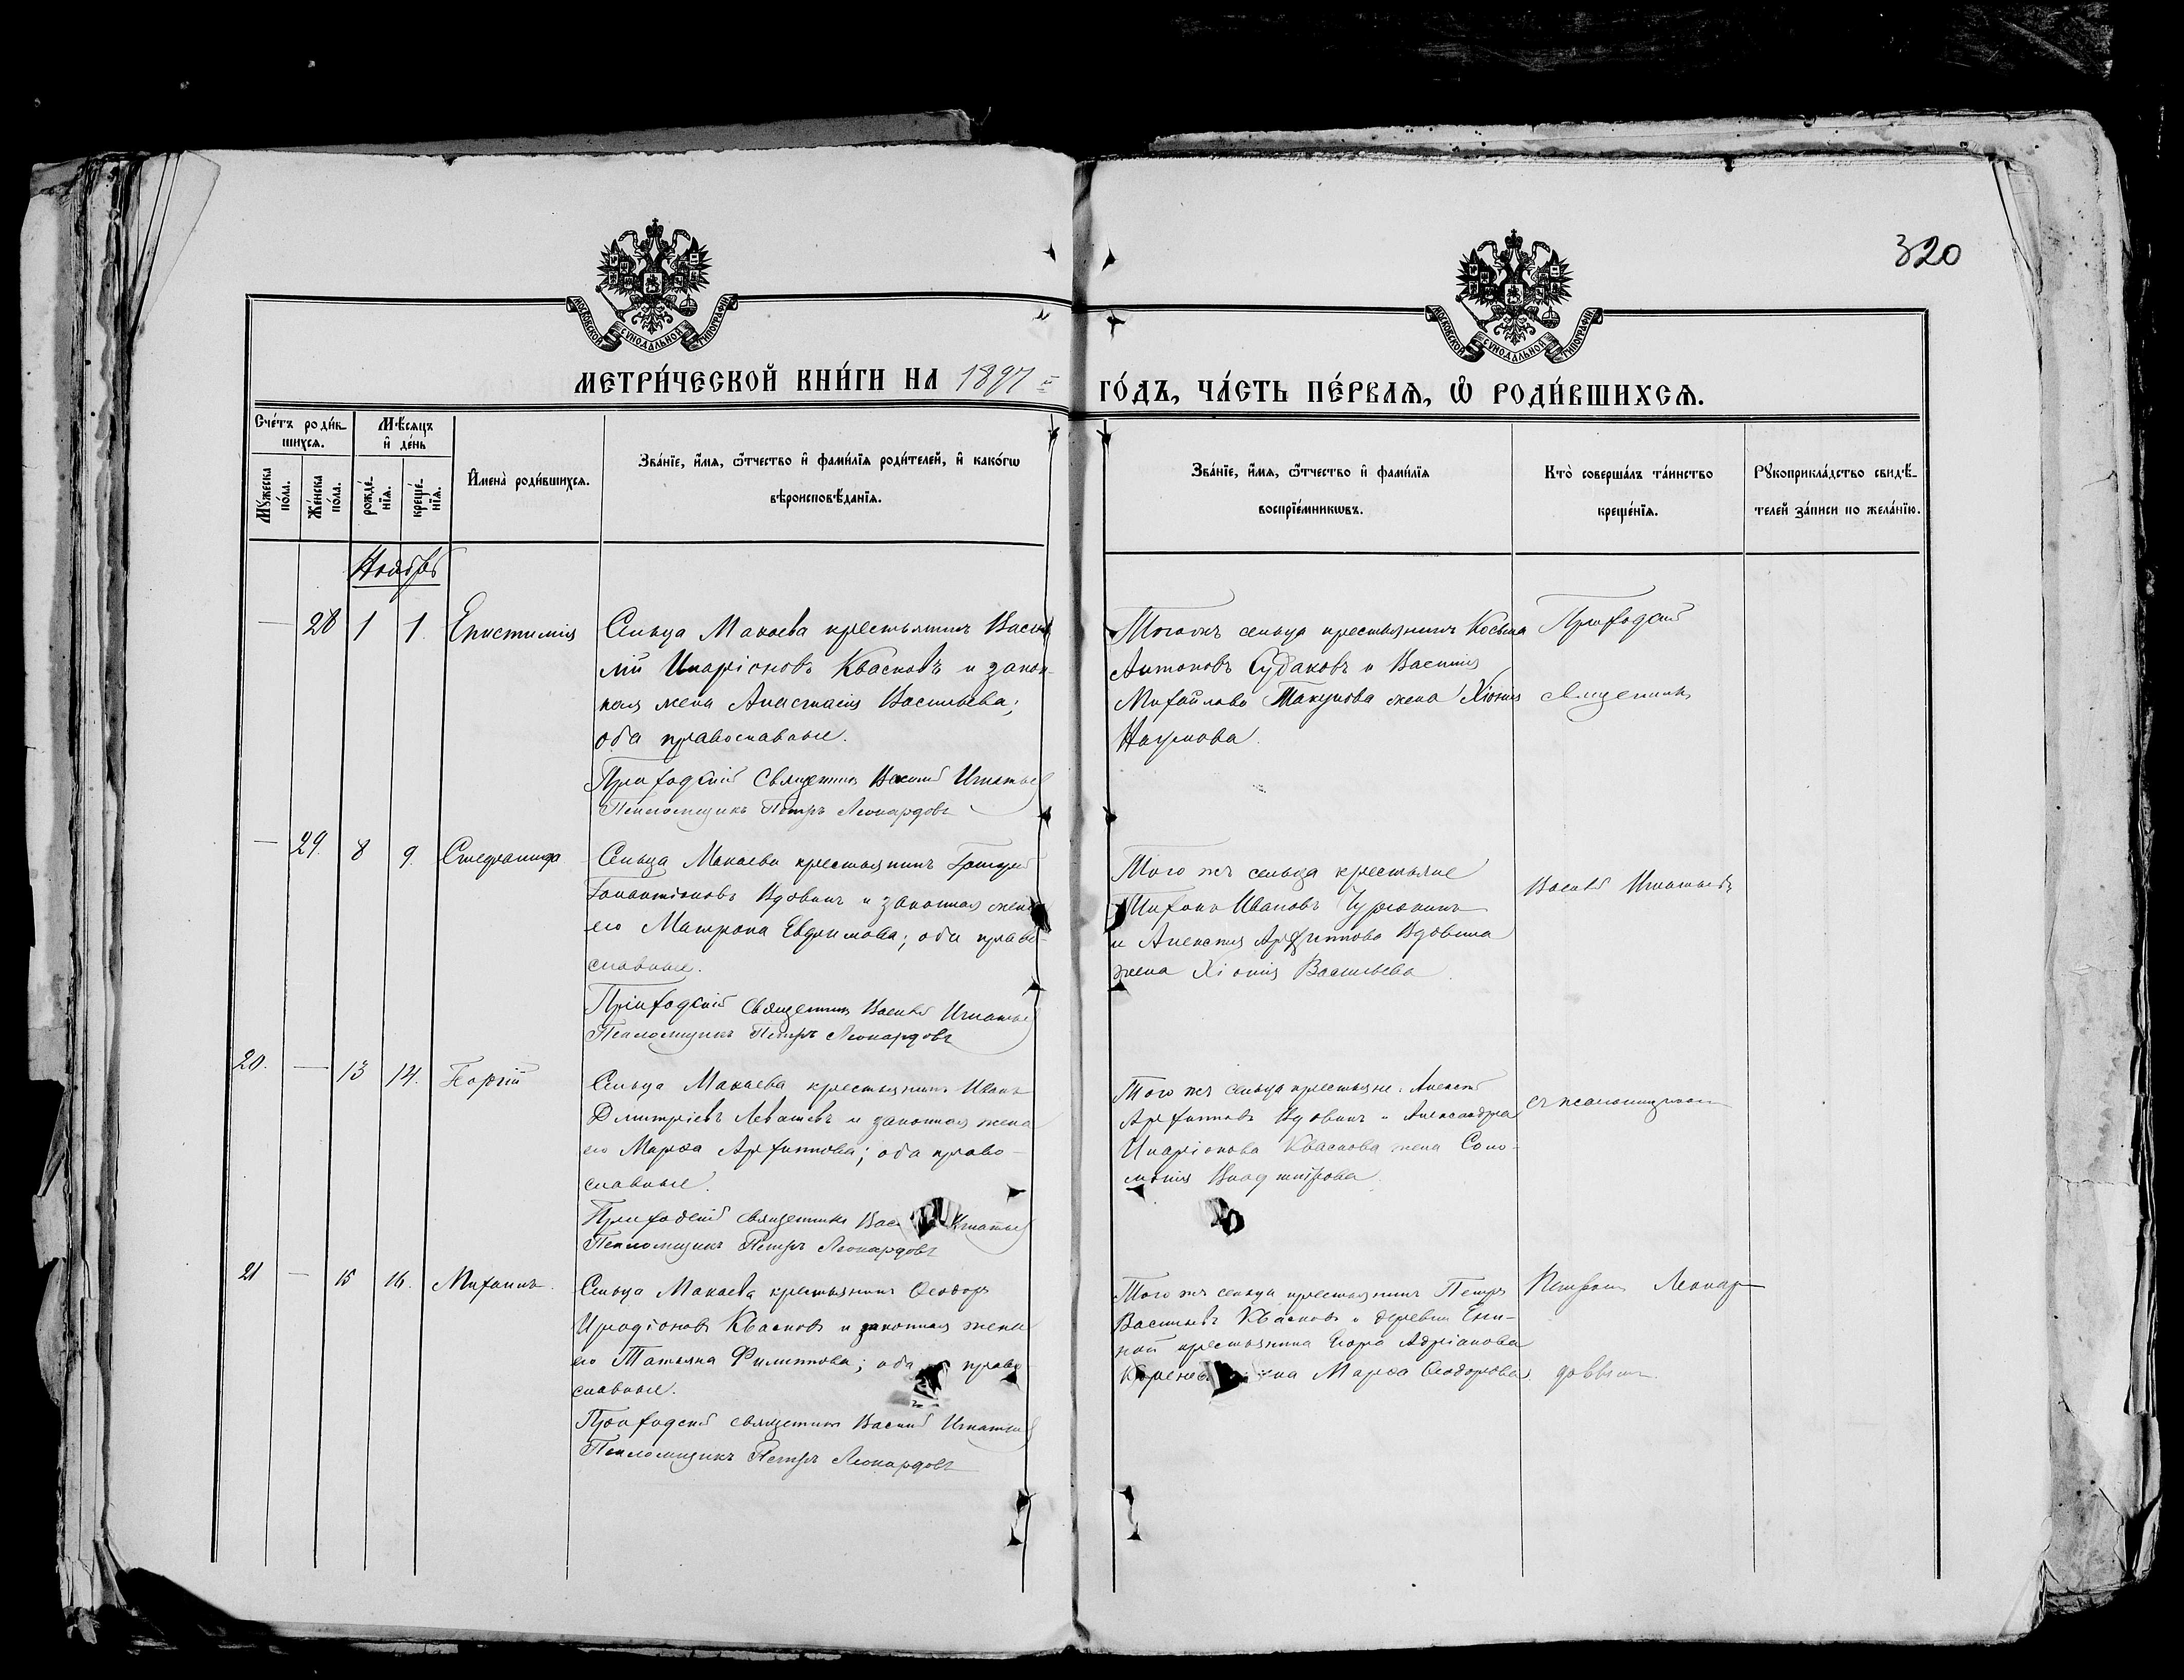 320
МОСКОВСКОЙ СѴНОДАЛЬНОЙ ТИПОГРАФІИ
МОСКОВСКОЙ СѴНОДАЛЬНОЙ ТИПОГРАФІИ
МЕТРИ́ЧЕСКОЙ КНИ́ГИ НА 1897 ГО́ДЪ, ЧА́СТЬ ПЕ́РВАѦ, Ѡ҆ РОДИ́ВШИХСѦ.
Сче́тъ роди́в-
шихсѧ.
Мѣ́сѧцъ
и҆ де́нь
Мꙋ́жеска
по́ла.
Же́нска
по́ла.
рожде́-
нїѧ.
креще́-
нїѧ.
И҆мена̀ роди́вшихсѧ.
Зва́нїе, и҆́мѧ, ѻ҆́тчество и҆ фами́лїѧ роди́телей, и҆ како́гѡ
вѣроисповѣ́данїѧ.
Зва́нїе, и҆́мѧ, ѻ҆́тчество и҆ фами́лїѧ
воспрїе́мникѡвъ.
Кто̀ соверша́лъ та́инство
креще́нїѧ.
Рꙋкоприкла́дство свидѣ́-
телей за́писи по жела́нїю.
Ноябрь
— 28 1 1. Епистимія
Сельца Макаева крестьянинъ Васи-
лій Иларіоновъ Квасковъ и закон-
ная жена Анастасія Васильева;
оба православные.
Приходскій Священникъ Василій Игнатьев
Псаломщикъ Петръ Леонардовъ
Тогожъ сельца крестьянинъ Косьма
Антоновъ Судаковъ и Василія
Михайлова жена Хіонія
Наумова.
Приходскій
священникъ
— 29. 8 9. Стефанида
Сельца Макаева крестьянинъ Григорій
Вдовинъ и законная жена
его Матрона Евфимова; оба право-
славные.
Приходскій Священникъ Василій Игнатьев
Псаломщикъ Петръ Леонардовъ
Того жъ сельца крестьяне
Тихонъ Ивановъ Чурюкинъ
и Алексія Архиппова Вдовина
жена Хіонія Васильева
Василій Игнатьевъ
20. — 13 14. Георгій
Сельца Макаева крестьянинъ Иванъ
Димитріевъ Левашевъ и законная жена
его Марѳа Архиппова; оба право-
славные.
Приходскій священникъ Вас Игнатьев
Псаломщикъ Петръ Леонардовъ
Того жъ сельца крестьяне: Алексій
Архипповъ Вдовинъ и Александра
Иларіонова Кваскова жена Соло-
монія
съ псаломщикомъ
21 — 15 16. Михаилъ.
Сельца Макаева крестьянинъ Ѳеодоръ
Иродіоновъ Квасковъ и законная жена
его Татьяна Филиппова; оба право-
славные.
Приходскій священникъ Василій Игнатьев
Псаломщикъ Петръ Леонардовъ
Того жъ сельца крестьянинъ Петръ
Васильевъ Квасковъ и деревни
крестьянина Адріанова
на Марѳа Ѳеодорова.
Петромъ Леонар-
довымъ.